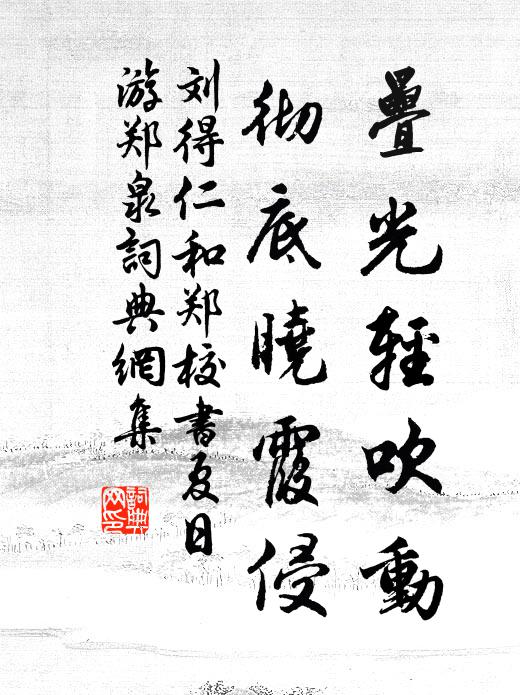 疊光輕吹動
彻底曉霞侵
刘得仁和郑校書夏日
游郑泉詞典網集
詞典网印